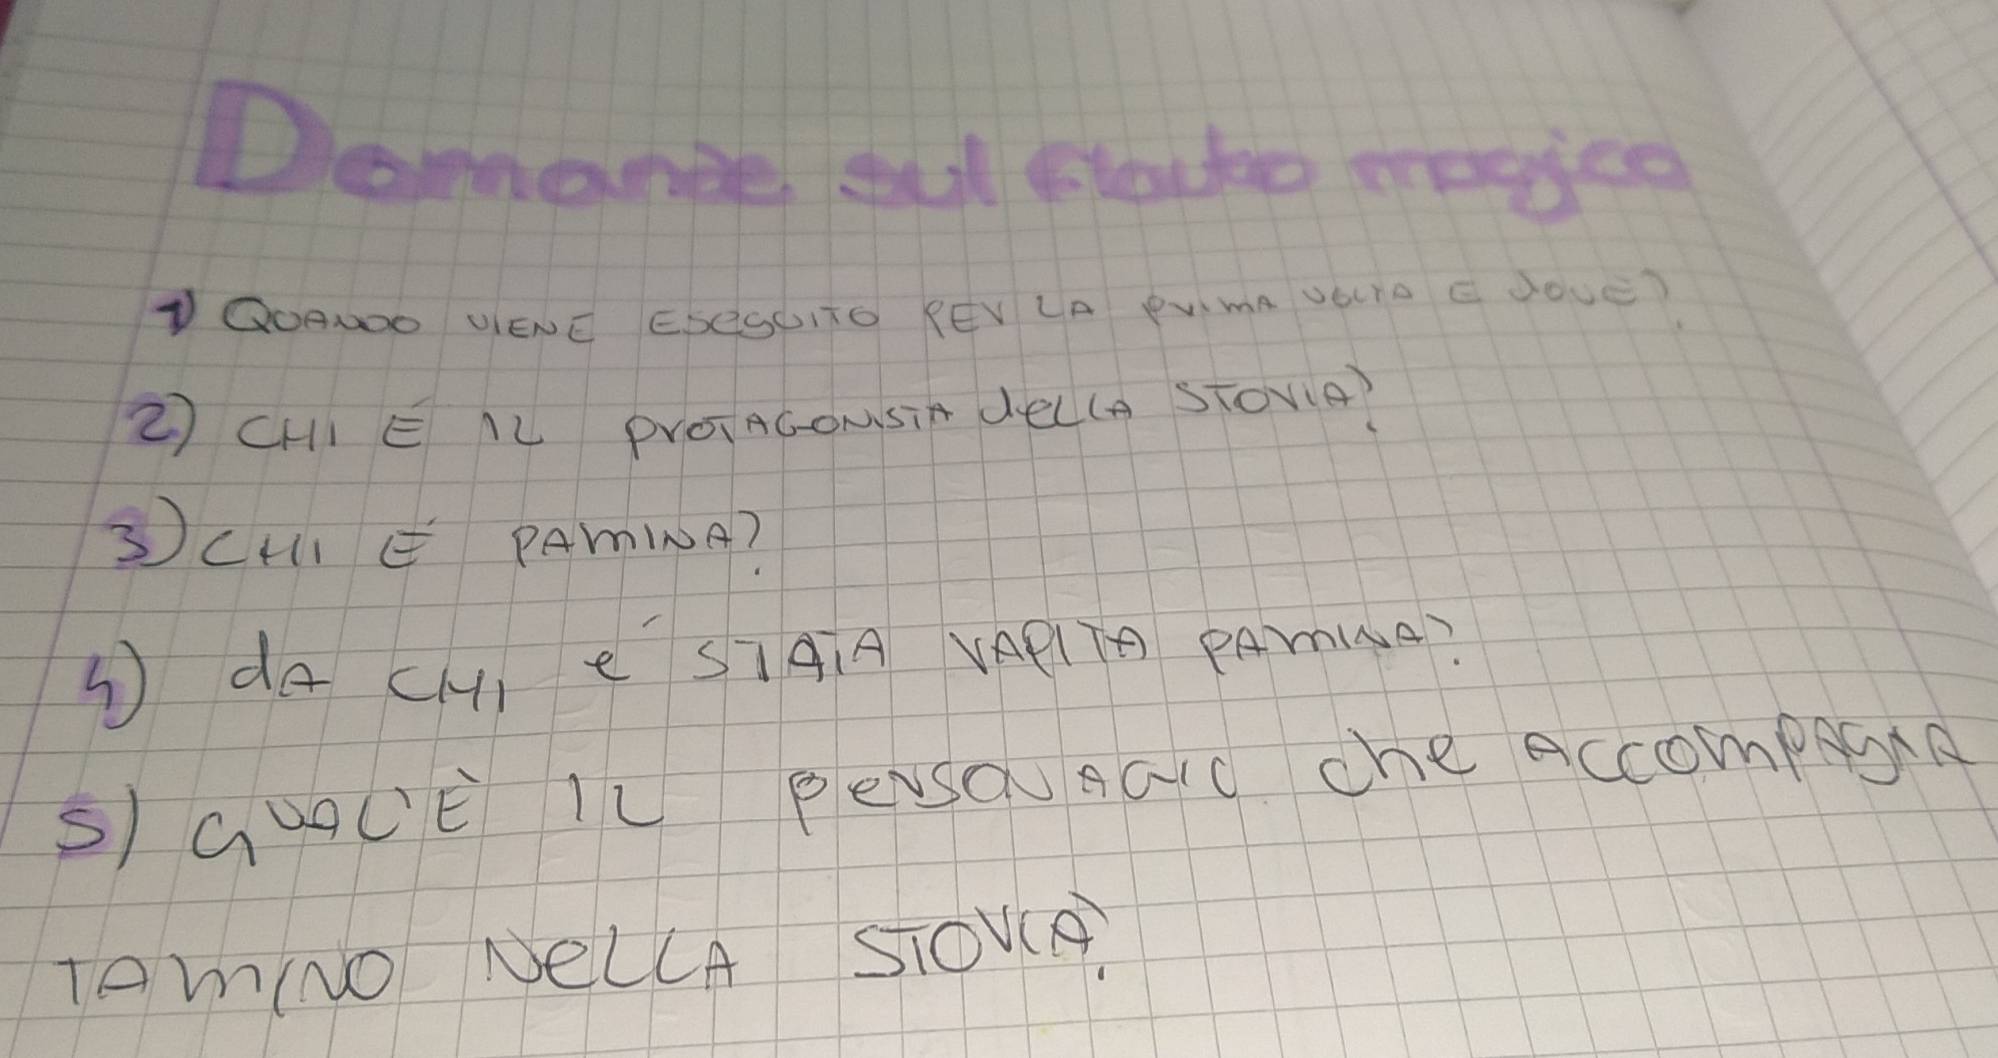 Domande sul flauto magico
1) QUANDO VIENE ESEGUITO PEr LA PrimA VOLTA E dOVE?
2) CHI É IL PrOTAGONISTA dELLA STOrIA?
3) CHI É PAmINA?
4) dA CHI é STATA rAPITA PAmINA?
5) QUAL'È IL PersONAGIO che ACCOmPAGNA
TAmINO NeLLA STOrIA?